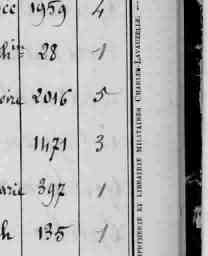 ce 1959 4
hin 28 1
oire 2016 5
1471 3
arie 397 1
h 135 1
PRIMERIE ET LIBRAIRIE MILITAIRES CHARLES-LAVAUZELLE. —